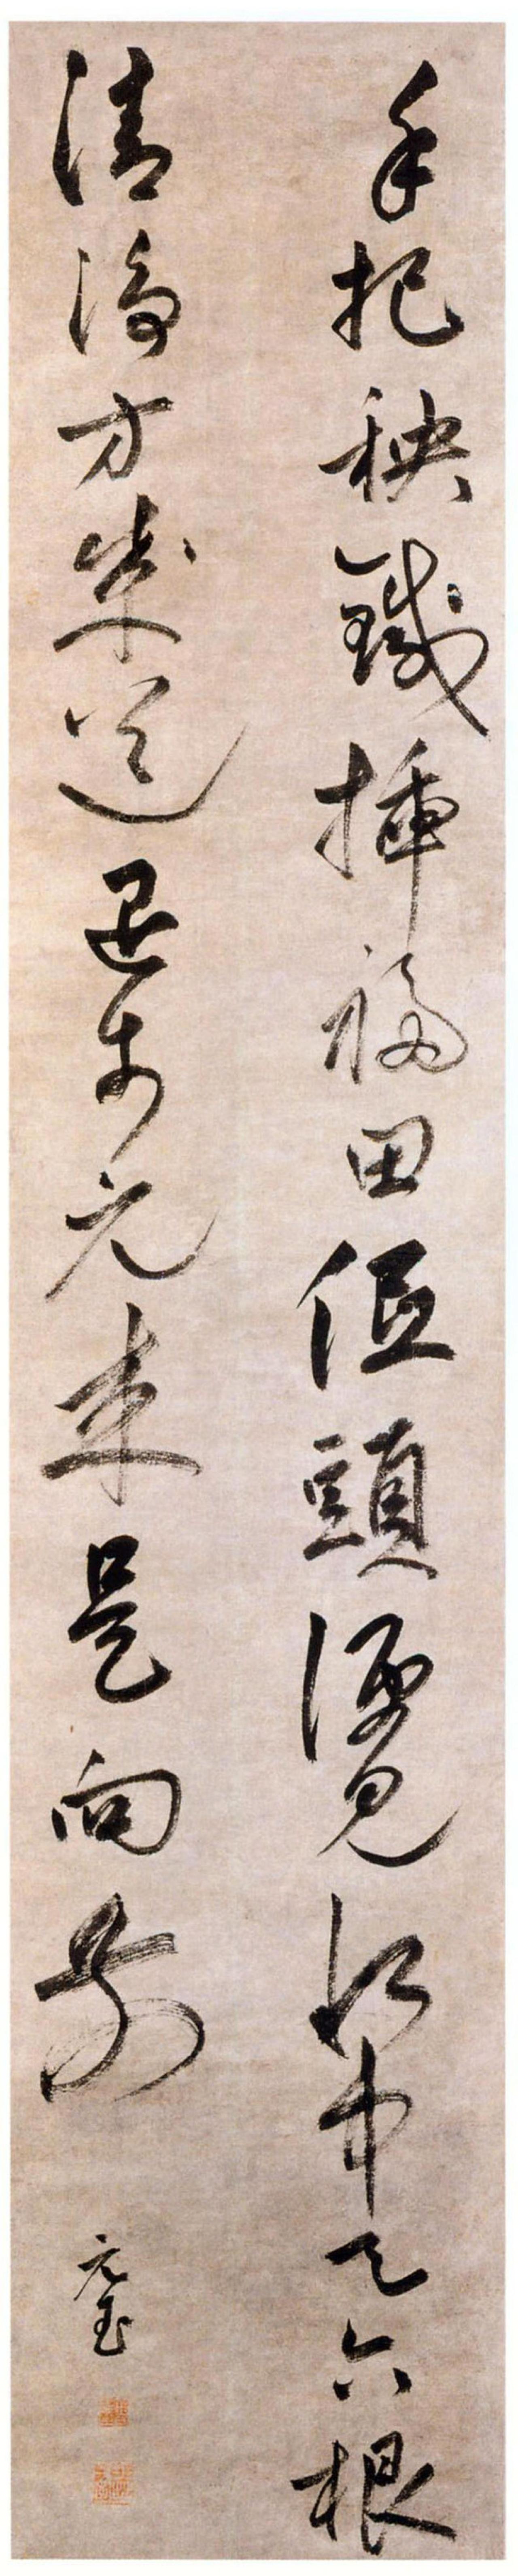 手把秧鍼插福田低頭便見水中天六根
清淨方道退步元來是向前
元玉